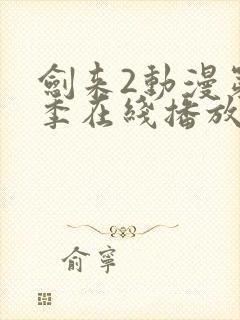 劍來2動漫第
季在綫播放
俞寧